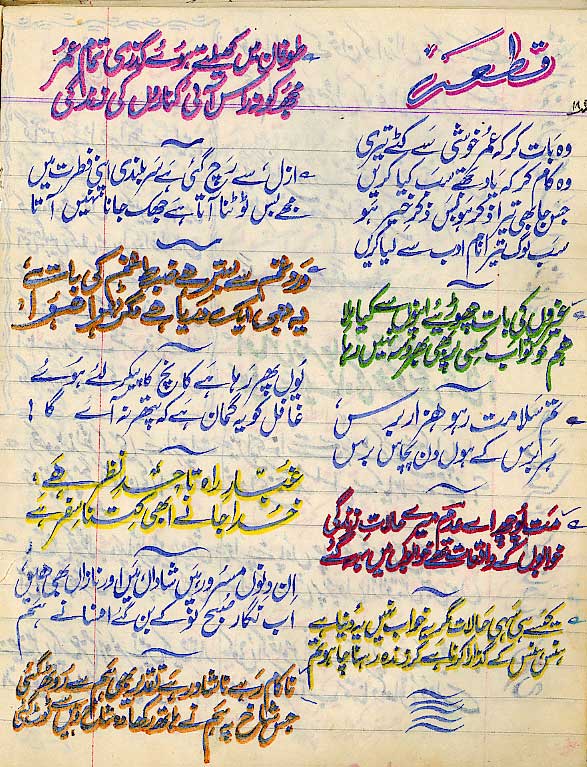 قطعہ
وہ بات کر کہ عمر خوشی سے کٹے تیری
وہ کام کر کہ یاد تجھے سب کیا کریں
جس جا بھی تیرا ذکر ہو بس ذکر خیر ہو
سب لوگ تیرا نام ادب سے لیا کریں
غیروں کی بات چھوڑیئے اپنوں سے کیا ملا
ہم کو تو اب کسی پر بھی بھروسہ نہیں رہا
تم سلامت رہو ہزار برس
ہر برس کے ہوں دن پچاس برس
مت پوچھ اے عدم میرے حالات زندگی
خوابوں کے واقعات تھے خوابوں میں رہ گئے
سہی حالات مگر یہ خواب نہیں یہ دنیا ہے
ہنس ہنس کے گزارا کرنا ہے گر زندہ رہنا چاہو تم
طوفان میں کھیلتے ہوئے گذری تمام عمر
مجھ کو نہ راس آئی کناروں کی زندگی
ازل سے رچ گئی ہے سر بلندی اپنی فطرت میں
مجھے بس ٹوٹنا آتا ہے جھک جانا نہیں آتا
غم سے ضبط غم کی بات ہے
یہ بھی ایک دریا ہے مگر ٹھہرا ہوا
یوں پھر رہا ہے کانچ کا پیکر لئے ہوئے
غافل کو یہ گمان ہے کہ پتھر نہ آئے گا !
غبار راہ تا حد نظر ہے
خدا جانے ابھی کتنا سفر ہے
ان دنوں مسرور ہیں شاداں ہیں اور نازاں بھی ہیں
اب نگار صبح نو کے بن گئے افسانے ہم
ناکام رہے ناشاد رہے تقدیر بھی ہم سے روٹھ گئی
جس شاخ پہ ہم نے ہاتھ رکھا وہ شاخ وہیں سے ٹوٹ گئی